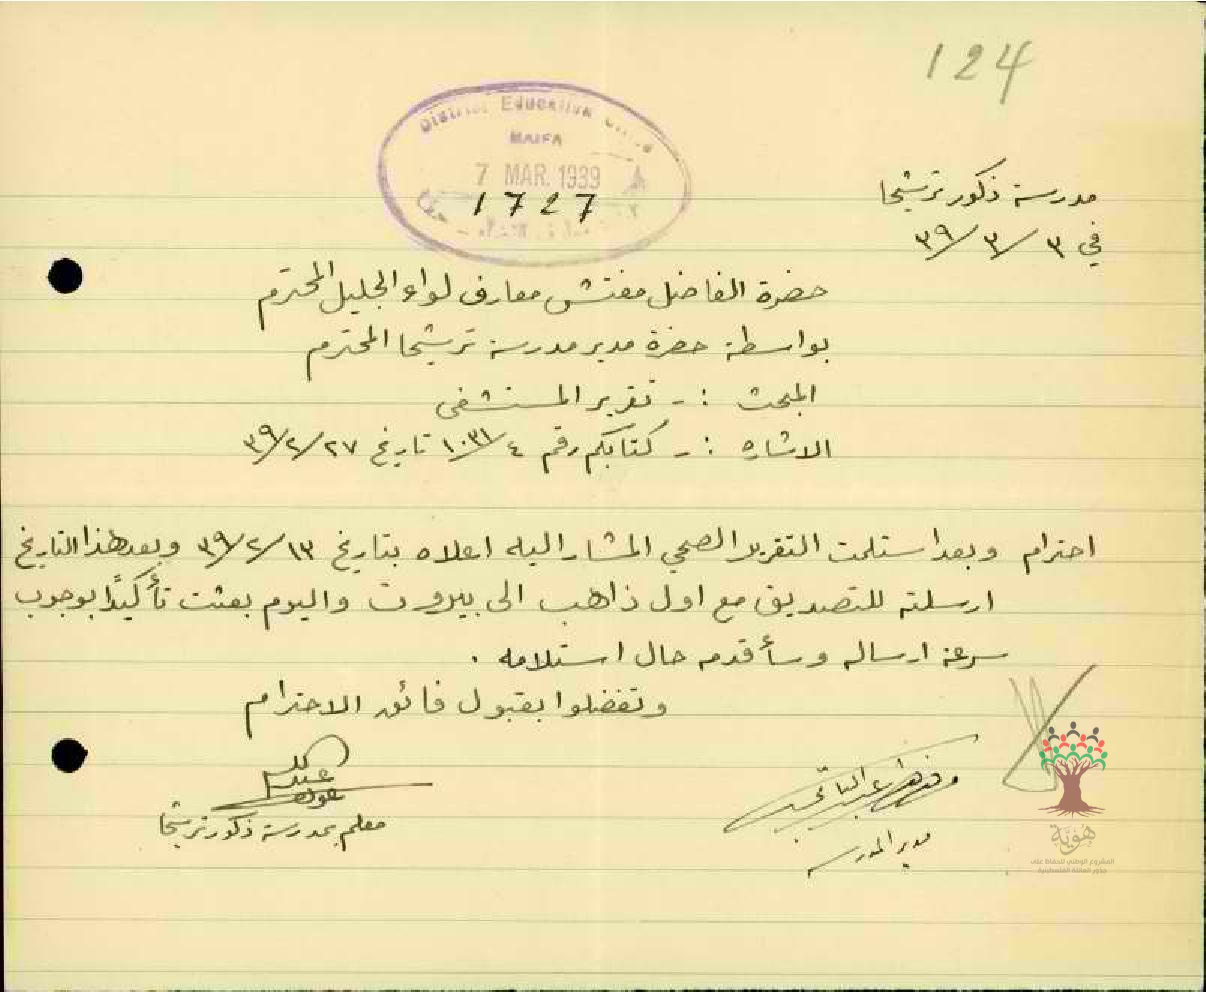 124
District Education
HAIFA
7 MAR. 1939
1727
مدرسة ذكور ترشيحا
في ٣/٣/٣٩
حضرة الفاضل مفتش معارف لواء الجليل المحترم
بواسطة حضرة مدير مدرسة ترشيحا المحترم
المبحث :- تقرير المستشفى
الاشاره :- كتابكم رقم ١٠٣١/٤ تاريخ ٢٧/٢/٣٩
احترام وبعد استلمت التقرير الصحي المشار اليه اعلاه بتاريخ ١٣/٢/٣٩ وبعد هذا التاريخ
ارسلته للتصديق مع اول ذاهب الى بيروت واليوم بعثت تأكيدًا بوجوب
سرعة ارساله وسأقدمه حال استلامه .
وتفضلوا بقبول فائق الاحترام
معلم بمدرسة ذكور ترشيحا
مدير المدرسه
هوية
المشروع الوطني للحفاظ على
جذور العائلة الفلسطينية